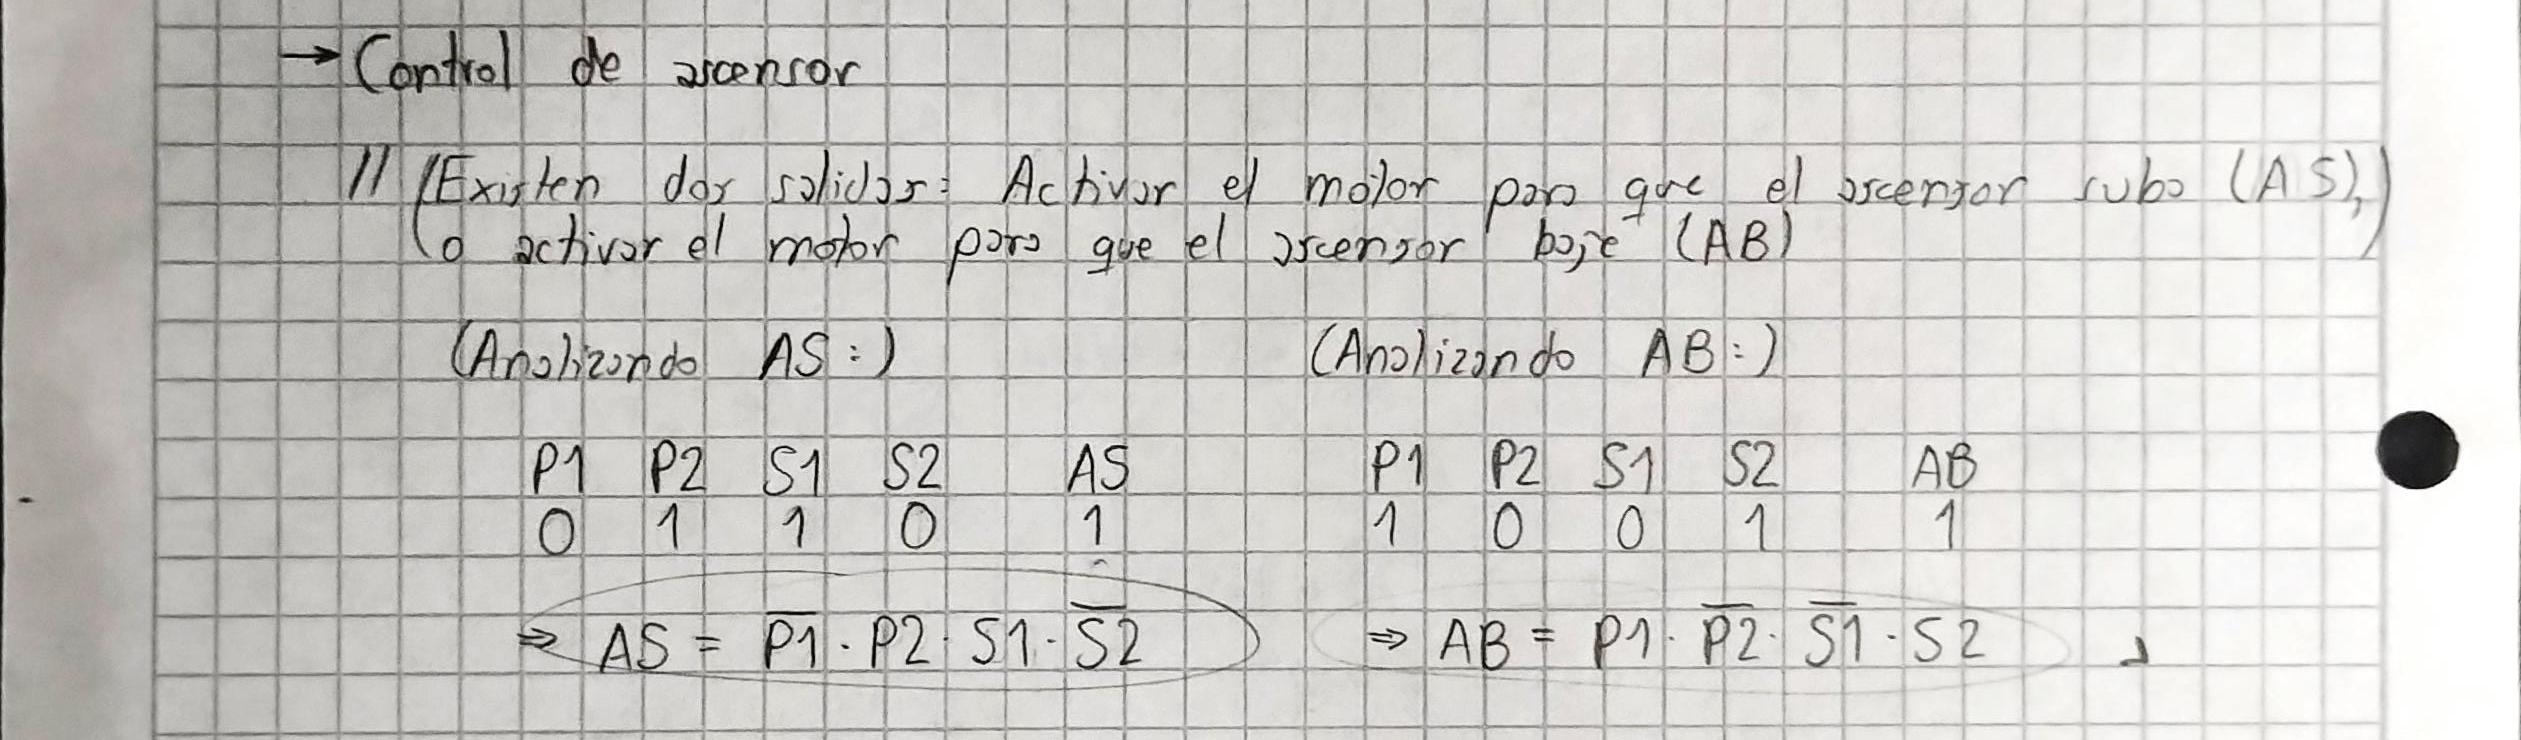 → Control de ascensor
// (Existen dos salidas: Activar el motor para que el ascensor suba (AS),)
(o activar el motor para que el ascensor baje (AB)
(Analizando AS:) (Analizando AB:)
P1 P2 S1 S2 AS P1 P2 S1 S2 AB
0 1 1 0 1 1 0 0 1 1
⇒ AS = P̅1̅ · P2 · S1 · S̅2̅ ⇒ AB = P1 · P̅2̅ · S̅1̅ · S2